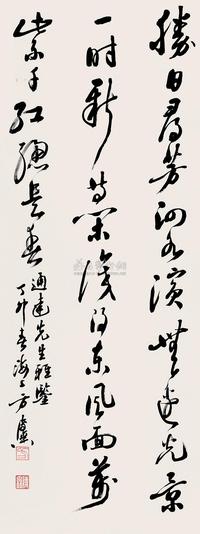 勝日尋芳泗水濱無邊光景
一时新等闲識得東風面萬
紫千红總是春
通達先生雅鑒
丁卯春海上方